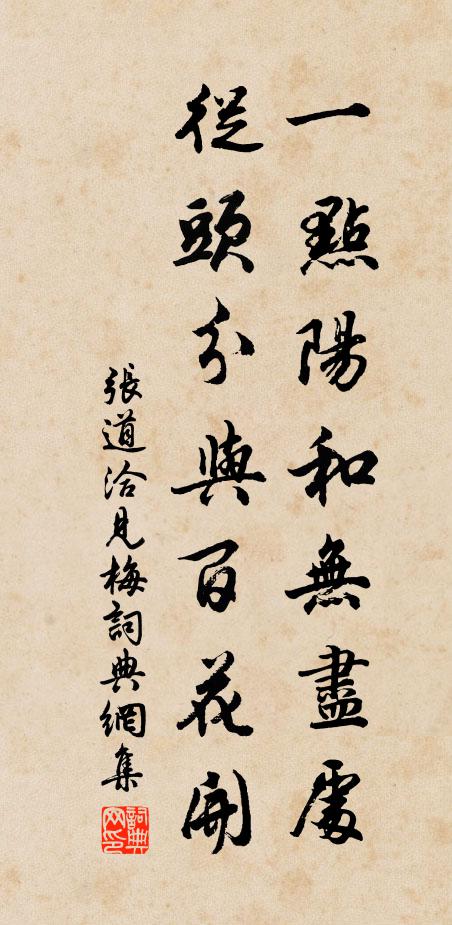 一點陽和無盡處
從頭分與百花開
張道洽見梅詞典網集
詞典网印